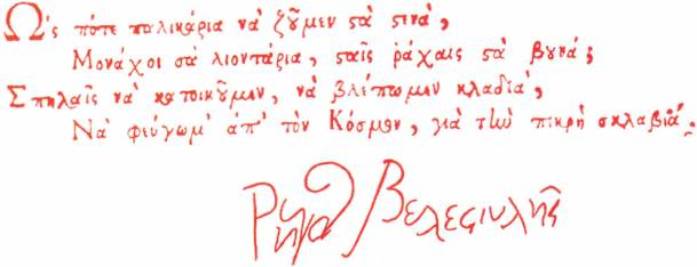 Ὡς πότε παλικάρια νὰ ζοῦμεν στὰ στενά,
Μονάχοι σὰ λιοντάρια, σταῖς ῥάχαις στὰ βουνά;
Σπηλαῖς νὰ κατοικοῦμεν, νὰ βλέπωμεν κλαδιὰ,
Νὰ φεύγωμ' ἀπ' τὸν Κόσμον, γιὰ τὴν πικρὴ σκλαβιά;
Ρήγα Βελεστινλῆς